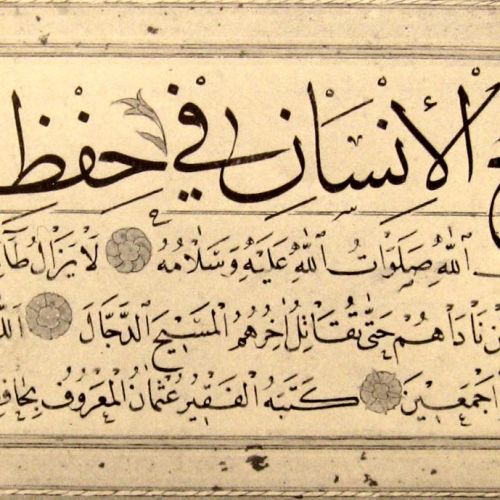 الْإِنْسَانِ فِي حِفْظِ
اللّٰهِ صَلَوَاتُ اللّٰهِ عَلَيْهِ وَسَلَامُهُ لَا يَزَالُ
نَادَاهُمْ حَتَّى يُقَاتِلَ اٰخِرُهُمُ الْمَسِيحَ الدَّجَّالَ
اَجْمَعِينَ كَتَبَهُ الْفَقِيرُ عُثْمَانُ الْمَعْرُوفُ